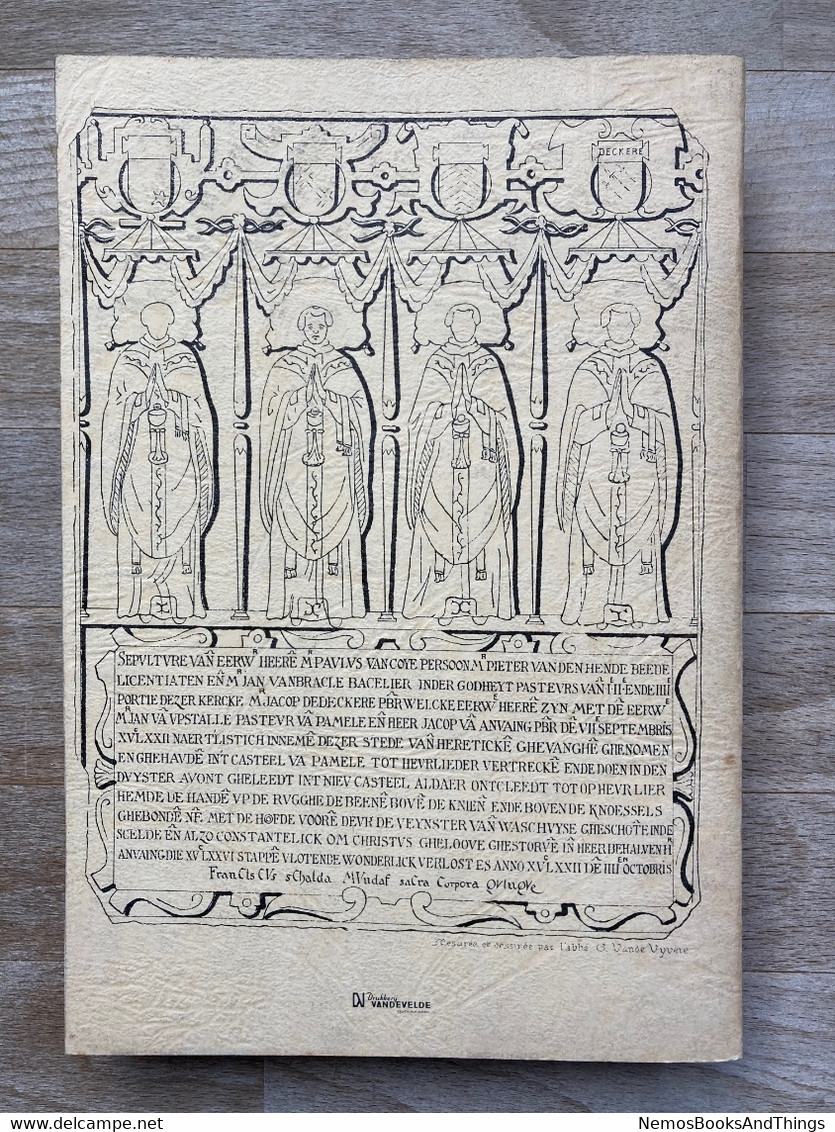 DECKERE
SEPVLTVRE VAÑ EERWᴿ HEERẼ Mᴿ PAVLVS VAN COYE PERSOON Mᴿ PIETER VAN DEN HENDE BEEDE
LICENTIATEN EÑ Mᴿ JAN VANBRACLE BACELIER INDER GODHEYT PASTEVRS VAÑ I II ENDE IIII
PORTIE DEZER KERCKE. Mᴿ JACOP DEDECKERE PB̃R WELCKE EERWᴱ HEERẼ ZYN MET DẼ EERWᴱ
Mᴿ JAN VÃ VPSTALLE PASTEVR VÃ PAMELE EÑ HEER JACOP VÃ ANVAING PB̃R DẼ VIIᴱ SEPTEMBRIS
XVᶜLXXII NAER TLISTICH INNEMẼ DEZER STEDE VAÑ HERETICKẼ GHEVANGHẼ GHENOMEN
EN GHEHAVDẼ INT CASTEEL VÃ PAMELE TOT HEVRLIEDER VERTRECKẼ ENDE DOEN IN DEN
DVYSTER AVONT GHELEEDT INT NIEV CASTEEL ALDAER ONTCLEEDT TOT OP HEVRLIER
HEMDE DE HANDẼ VP DE RVGGHE DE BEENẼ BOVẼ DE KNIEÑ ENDE BOVEN DE KNOESSELS
GHEBONDẼ ÑE MET DE HOOFDE VOORẼ DEVR DE VEYNSTER VAÑ WASCHVYSE GHESCHOTẼ INDE
SCELDE EÑ ALZO CONSTANTELICK OM CHRISTVS GHELOOVE GHESTORVẼ IÑ HEER BEHALVEN H
ANVAING DIE XVᶜLXXVI STAPPẼ VLOTENDE WONDERLICK VERLOST ES ANNO XVᶜLXXII DẼ IIIIᴱᴺ OCTOBRIS
FranCIsCVs sChalda MVndaf saCra Corpora qVInqVe
Mesurée et dessinée par l'abbé G. Vande Vyvere
DV Drukkerij
VANDEVELDE
NemosBooksAndThings